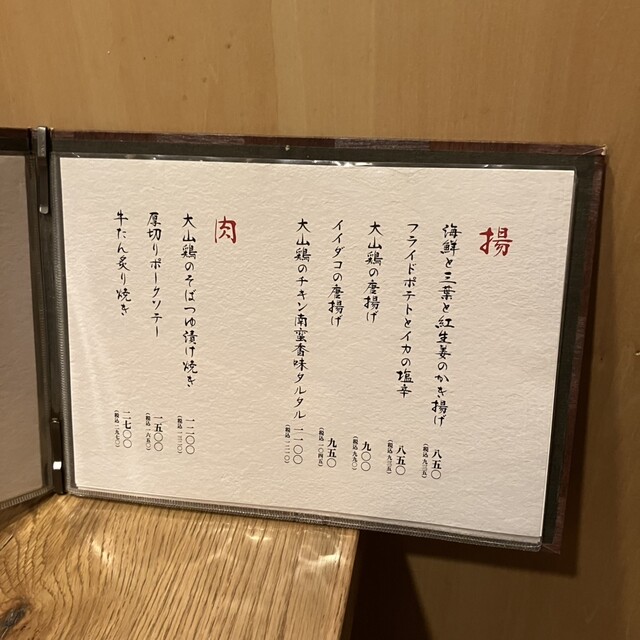 揚
海鮮と三葉と紅生姜のかき揚げ 八五〇
(税込九三五)
フライドポテトとイカの塩辛 八五〇
(税込九三五)
大山鶏の唐揚げ 九〇〇
(税込九九〇)
イイダコの唐揚げ 九五〇
(税込一〇四五)
大山鶏のチキン南蛮香味タルタル 一一〇〇
(税込一二一〇)
肉
大山鶏のそばつゆ漬け焼き 一二〇〇
(税込一三二〇)
厚切りポークソテー 一五〇〇
(税込一六五〇)
牛たん炙り焼き 二七〇〇
(税込二九七〇)